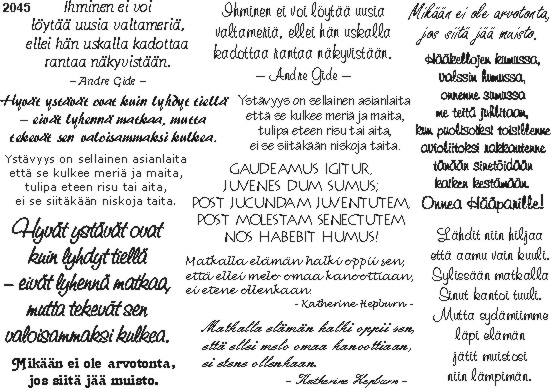 2045
Ihminen ei voi
löytää uusia valtameriä,
ellei hän uskalla kadottaa
rantaa näkyvistään.
– Andre Gide –
Hyvät ystävät ovat kuin lyhdyt tiellä
– eivät lyhennä matkaa, mutta
tekevät sen valoisammaksi kulkea.
Ystävyys on sellainen asianlaita
että se kulkee meriä ja maita,
tulipa eteen risu tai aita,
ei se siitäkään niskoja taita.
Hyvät ystävät ovat
kuin lyhdyt tiellä
– eivät lyhennä matkaa,
mutta tekevät sen
valoisammaksi kulkea.
Mikään ei ole arvotonta,
jos siitä jää muisto.
Ihminen ei voi löytää uusia
valtameriä, ellei hän uskalla
kadottaa rantaa näkyvistään.
– Andre Gide –
Ystävyys on sellainen asianlaita
että se kulkee meriä ja maita,
tulipa eteen risu tai aita,
ei se siitäkään niskoja taita.
GAUDEAMUS IGITUR,
JUVENES DUM SUMUS;
POST JUCUNDAM JUVENTUTEM,
POST MOLESTAM SENECTUTEM
NOS HABEBIT HUMUS!
Matkalla elämän halki oppii sen,
että ellei melo omaa kanoottiaan,
ei etene ollenkaan.
- Katherine Hepburn -
Matkalla elämän halki oppii sen,
että ellei melo omaa kanoottiaan,
ei etene ollenkaan.
- Katherine Hepburn -
Mikään ei ole arvotonta,
jos siitä jää muisto.
Hääkellojen kumussa,
valssin humussa,
onnenne sumussa
me teitä juhlitaan,
kun puolisoiksi toisillenne
avioliitoksi rakkautenne
tänään sinetöidään
kaiken kestämään.
Onnea Hääparille!
Lähdit niin hiljaa
että aamu vain kuuli.
Sylissään matkalla
Sinut kantoi tuuli.
Mutta sydämiimme
läpi elämän
jätit muistosi
niin lämpimän.